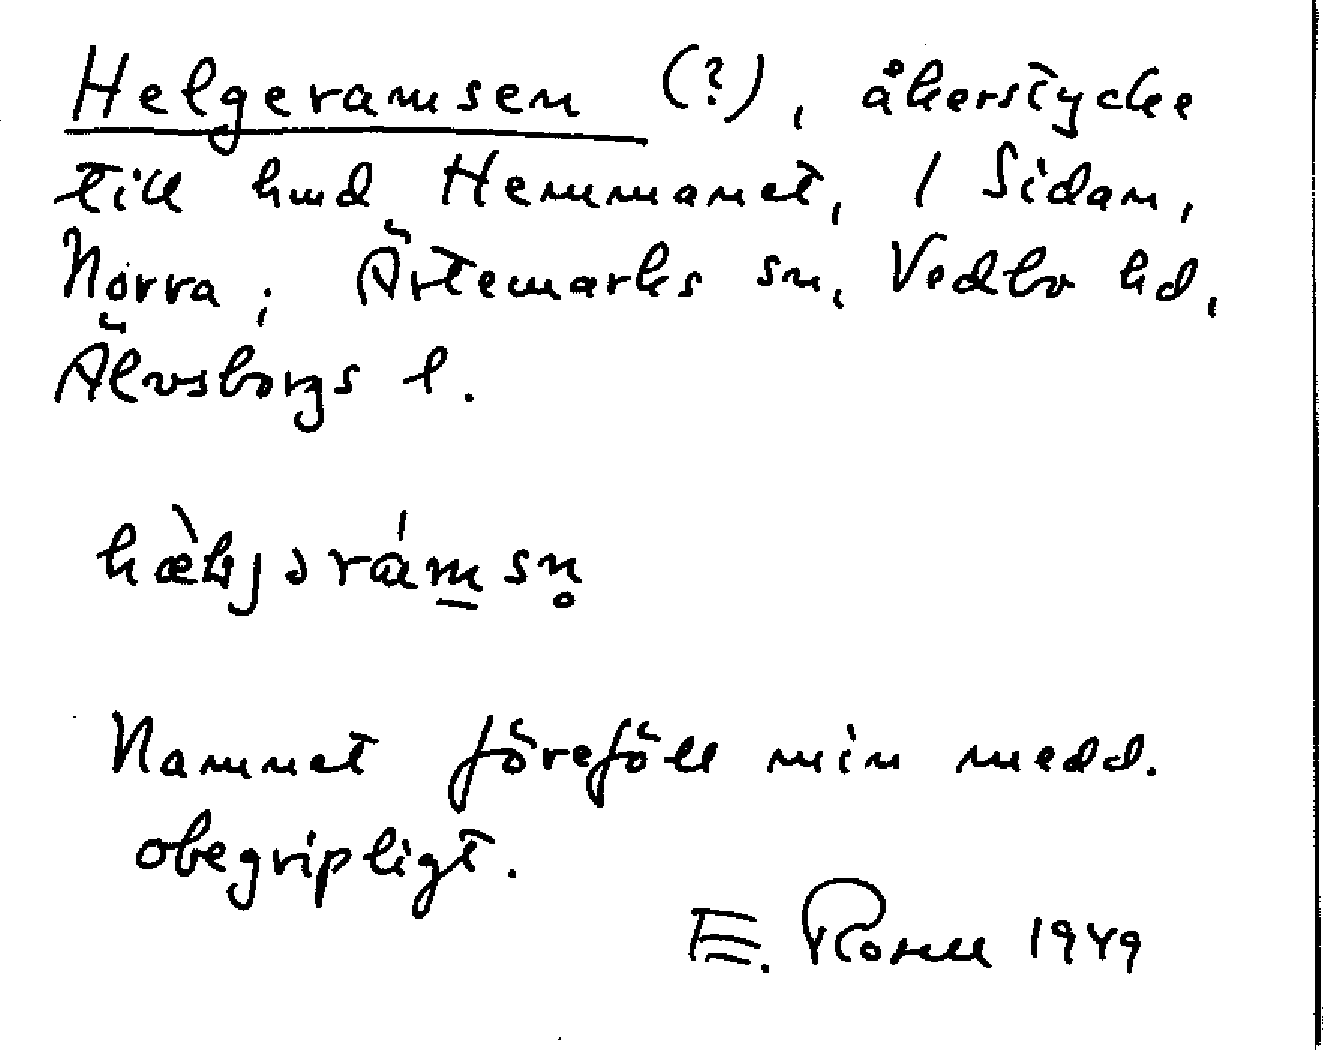 Helgeramsen (?), åkerstycke
till hmd Hemmanet, 1 Sidan,
Norra; Ärtemarks sn, Vedbo hd,
Älvsborgs l.
Namnet föreföll min medd.
obegripligt.
E. 1949